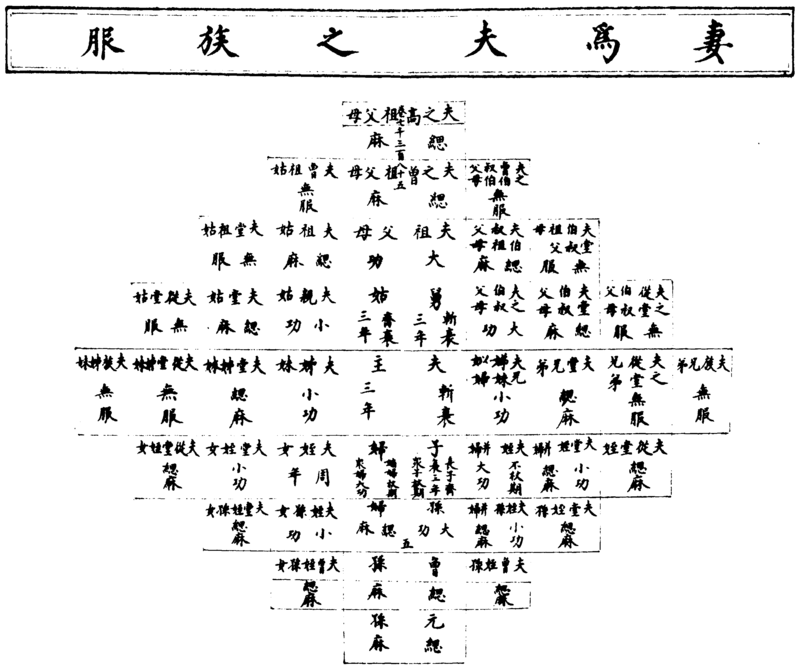 妻為夫之族服
夫之高祖父母
緦麻
卷七千三百八十五
夫之曾伯叔父母
無服
夫之曾祖父母
緦麻
夫曾祖姑
無服
夫堂伯叔祖父母
無服
夫伯叔祖父母
緦麻
夫祖父母
大功
夫祖姑
緦麻
夫堂祖姑
無服
夫之從堂伯叔父母
無服
夫堂伯叔父母
緦麻
夫之伯叔父母
大功
舅
斬衰三年
姑
齊衰三年
夫親姑
小功
夫堂姑
緦麻
夫從堂姑
無服
夫族兄弟
無服
夫之從堂兄弟
無服
夫堂兄弟
緦麻
夫兄弟姒婦
小功
夫
斬衰
主
三年
夫姊妹
小功
夫堂姊妹
緦麻
夫從堂姊妹
無服
夫族姊妹
無服
夫從堂姪
緦麻
夫堂姪
小功
并婦
緦麻
夫姪
不杖期
并婦
大功
子
長子齊衰三年
眾子杖期
婦
嫡婦杖期
眾婦大功
夫姪女
周年
夫堂姪女
小功
夫從堂姪女
緦麻
夫堂姪孫
緦麻
夫姪孫
小功
并婦
緦麻
孫
大功
婦
緦麻
五
夫姪孫女
小功
夫堂姪孫女
緦麻
夫曾姪孫
緦麻
曾孫
緦麻
夫曾姪孫女
緦麻
元孫
緦麻